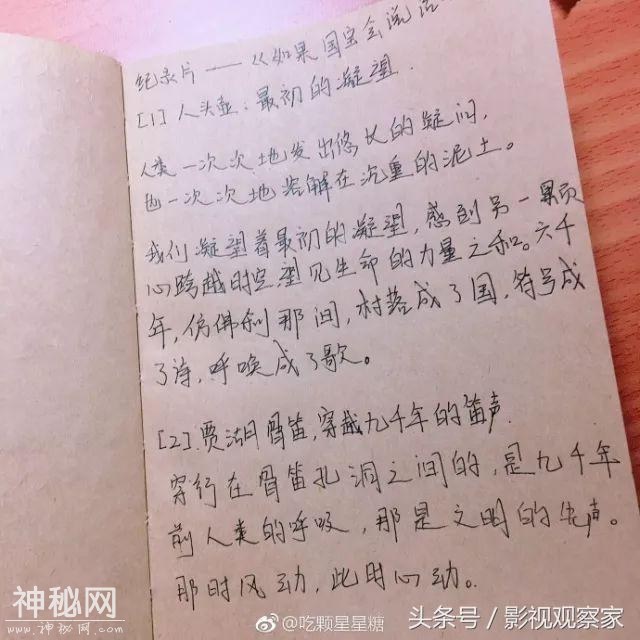 纪录片——《如果国宝会说话
[1] 人头壶:最初的凝望.
人类一次次地发出悠长的疑问,
也一次次地溶解在沉重的泥土。
我们凝望着最初的凝望,感到另一颗
心跨越时空,望见生命的力量之和。六千
年,仿佛刹那间,村落成了国,符号成
了诗,呼唤成了歌。
[2].贾湖骨笛,穿越九千年的笛声.
穿行在骨笛孔洞之间的,是九千年
前人类的呼吸,那是文明的先声。
那时风动,此时心动。
神秘网
WWW.神秘网.COM
@吃颗星星糖
头条号/影视观察家